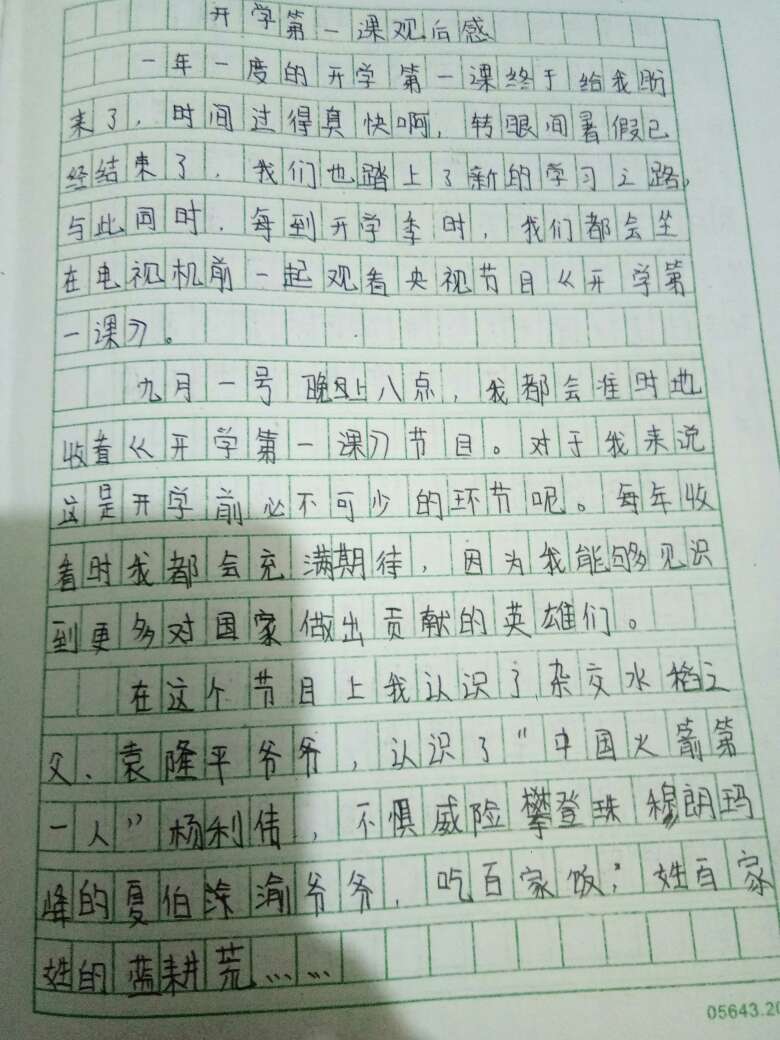 开学第一课观后感
一年一度的开学第一课终于给我盼
来了，时间过得真快啊，转眼间暑假已
经结束了，我们也踏上了新的学习之路。
与此同时，每到开学季时，我们都会坐
在电视机前一起观看央视节目《开学第
一课》。
九月一号晚上八点，我都会准时地
收看《开学第一课》节目。对于我来说
这是开学前必不可少的环节呢。每年收
看时我都会充满期待，因为我能够见识
到更多对国家做出贡献的英雄们。
在这个节目上我认识了杂交水稻之
父、袁隆平爷爷，认识了“中国火箭第
一人”杨利伟，不惧威险攀登珠穆朗玛
峰的夏伯渝爷爷，吃百家饭，姓百家
姓的蓝耕荒……
05643.20